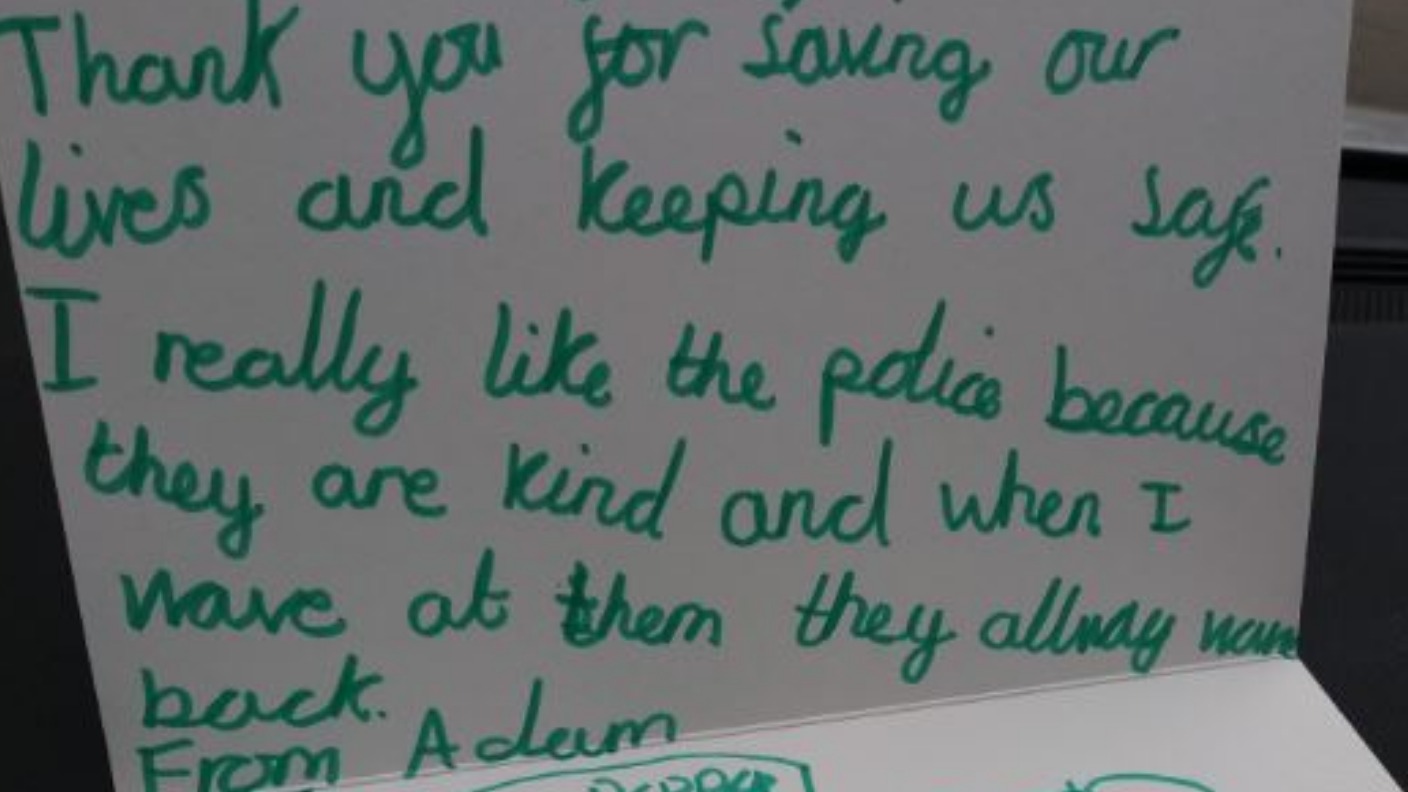 Thank you for saving our
lives and keeping us safe.
I really like the police because
they are kind and when I
wave at them they allway wave
back.
From Adam